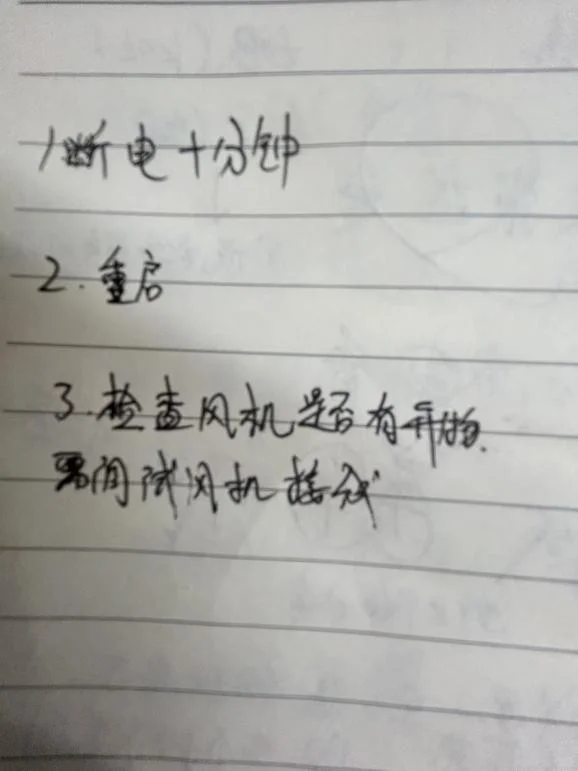 1 断电十分钟
2. 重启
3. 检查风机是否有异物.
试风机接线